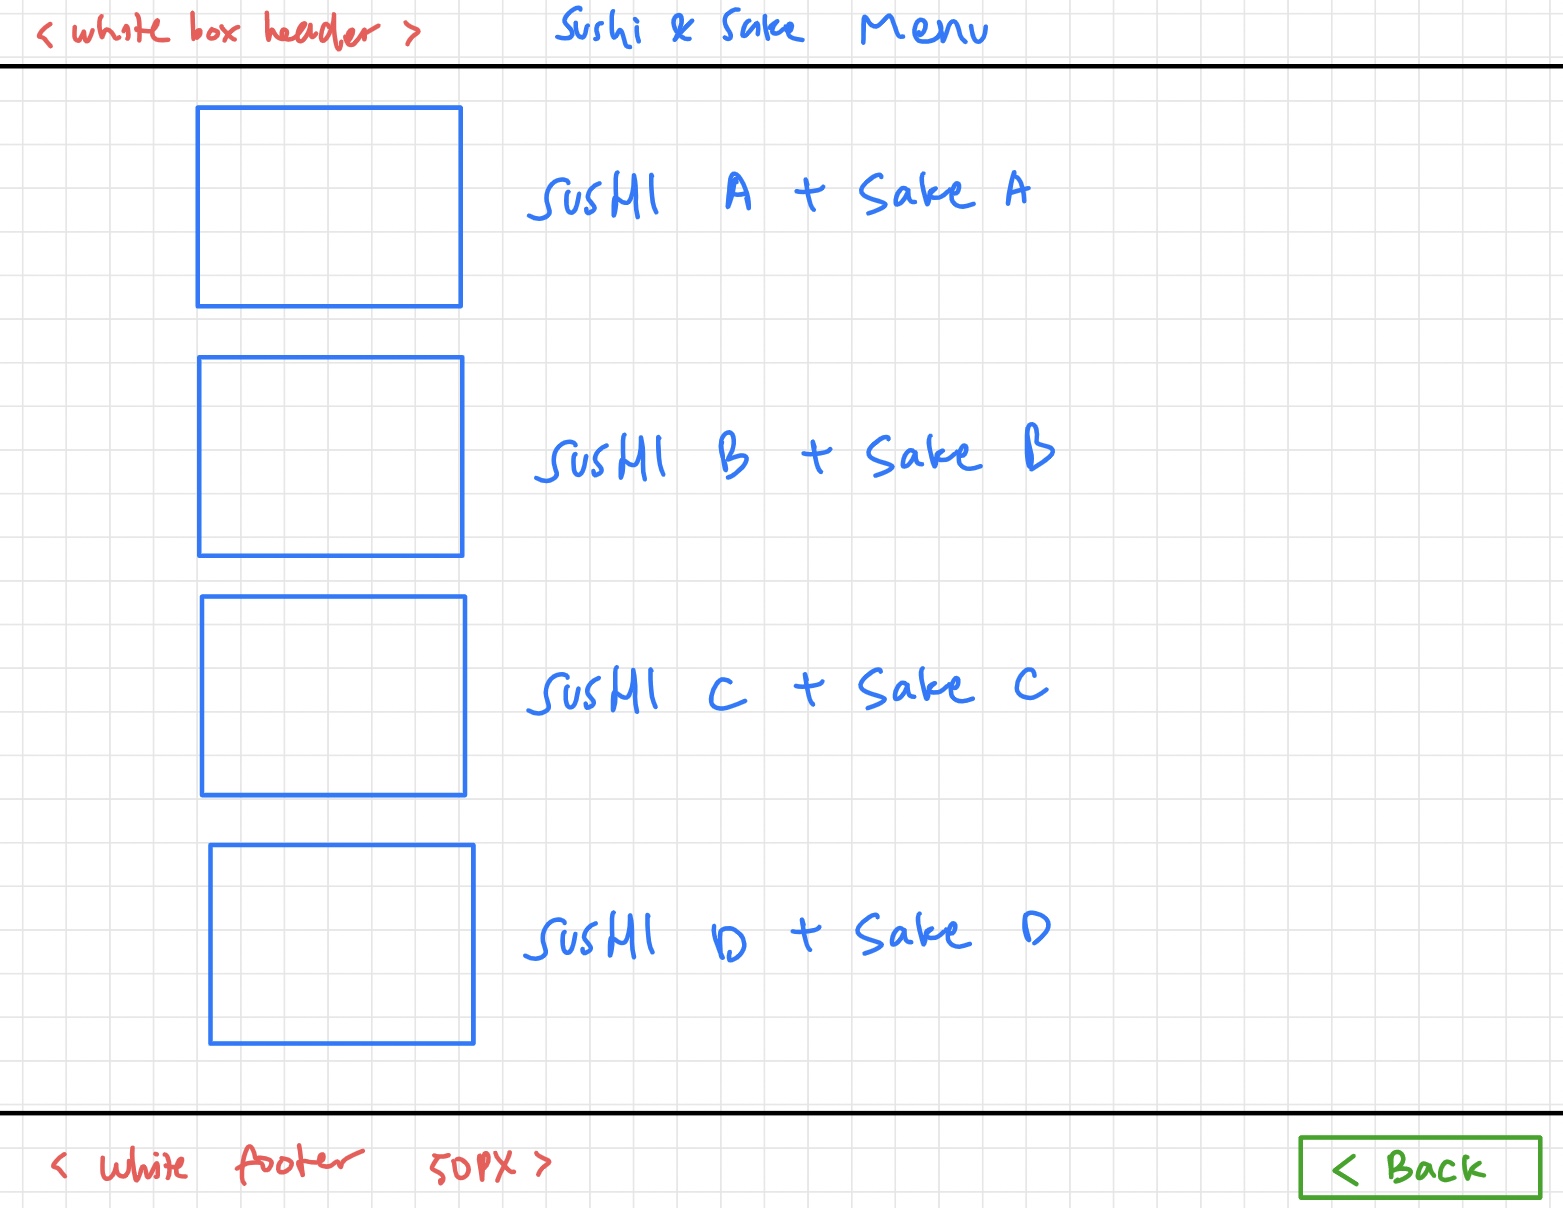 < white box header > Sushi & Sake Menu
SUSHI A + Sake A
SUSHI B + Sake B
SUSHI C + Sake C
SUSHI D + Sake D
< white footer 50px > < Back